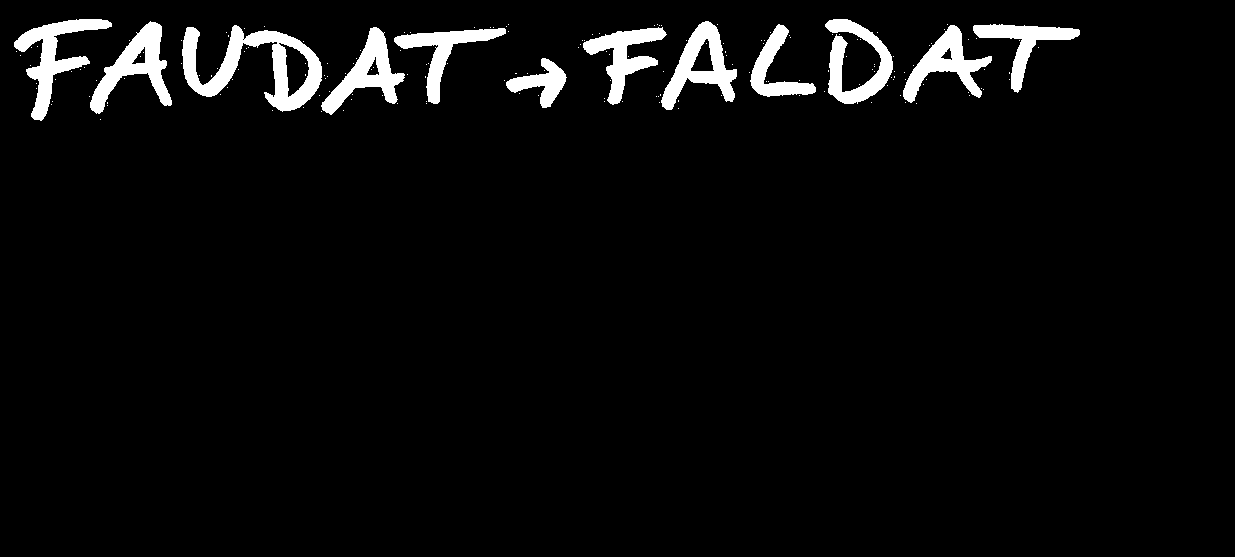 FAUDAT → FALDAT